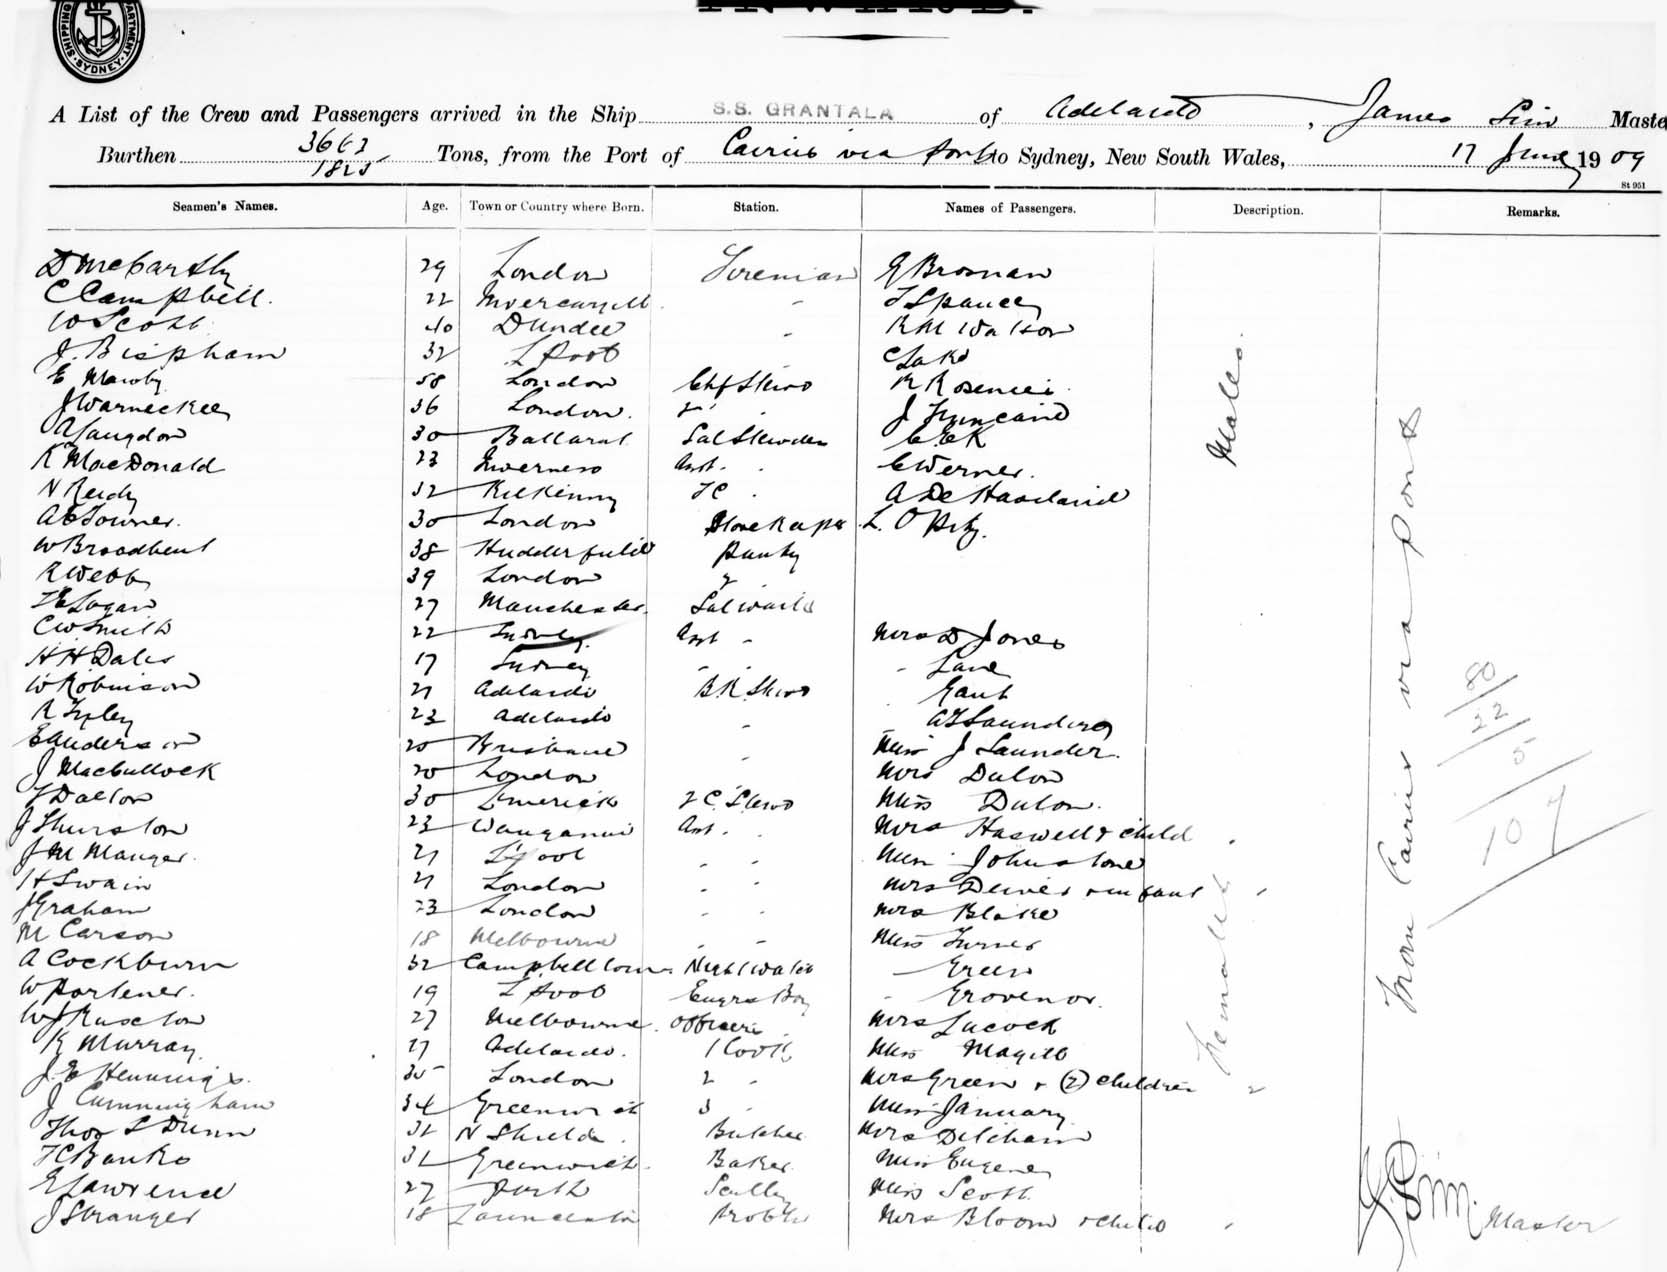 INWARD.
SHIPPING DEPARTMENT SYDNEY
A List of the Crew and Passengers arrived in the Ship S.S. GRANTALA of Adelaide, James Sim Maste
Burthen 3663 Tons, from the Port of Cairns via ports to Sydney, New South Wales, 17 June 1909
1825
St 951
Seamen's Names. Age. Town or Country where Born. Station. Names of Passengers. Description. Remarks.
D McCarthy 29 London Fireman G Brosnan
C Campbell. 22 Invercargill - T Spancey
W Scott 40 Dundee - R M Watson
J. Bispham 32 L'pool C Lake
E Mawby 58 London Chf Stewd R
J Warneckee 36 London. 2 J
A Langdon 30 Ballarat Sal Stewdess
K MacDonald 23 Inverness Asst. C Werner.
N Reidy 32 Kilkenny A De Haviland
A E Towner. 30 London Storekeeper L.
W Broadbent 38 Hudderfield Pantry
R Webb 39 London 2
T E Logan 27 Manchester.
C W Smith 22 Sydney Asst - Mrs D Jones
H H Dales 17 Sydney - - - Lane
W Robinson 21 Adelaide B.R. Stewd Gant
R 23 Adelaide - A T Saunders
E Anderson 20 Brisbane - Miss J Saunder.
J MacCullock 20 London Mrs Dulon
T Dalton 30 Limerick 2 C. Stewd Miss Dulon.
J Thurston 23 Wanganui Asst. Mrs Haswell & child
J M Manger. 21 L'pool - - Miss Johnstone
H Swain 21 London - - Mrs & infant
J Graham 23 London - - Mrs Blake
M Carson 18 Melbourne - - Miss Turner
A Cockburn 32 Campbelltown. Nightwatch - Green
W Portener. 19 L'pool Engrs Boy - Grovenor.
W J Ruxton 27 Melbourne. Officers Mrs Lacock
K Murray 27 Adelaide. 1 Cook Miss Magill
J. E Hennings. 35 London 2 - Mrs Green & (2) children
J Cunningham 34 Greenwich 3 - Miss January
Thos L Dunn 31 N Shields. Butcher Mrs Delchain
T C Banks 31 Greenwich. Baker. Miss Eugene
E Lawrence 27 Perth Scully Miss Scott.
J Stranger 18 Launceston Mrs Bloom & child
Males.
Females
From Cairns via ports
80
22
5
107
J Sim. Master